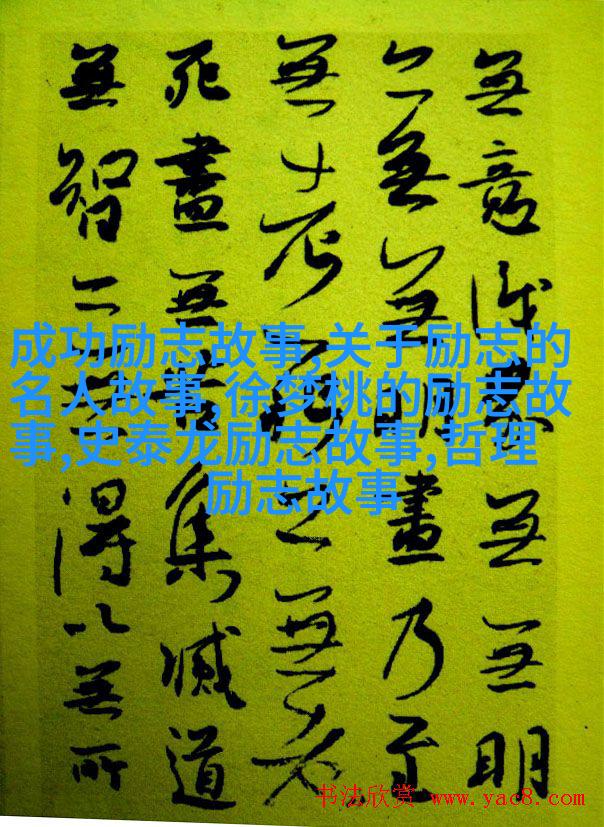 無意識界無無明
亦無無明盡乃至
無老死亦無老
死盡無苦集滅道
無智亦無得以無所
成功励志故事,关于励志的
名人故事,徐梦桃的励志故
事,史泰龙励志故事,哲理
励志故事
书法欣赏 www.yac8.com